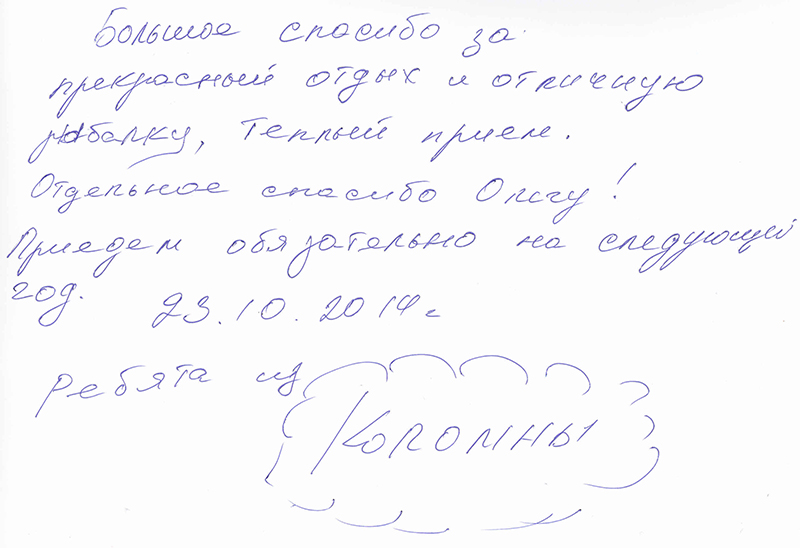 Большое спасибо за
прекрасный отдых и отличную
рыбалку, теплый прием.
Отдельное спасибо Олегу!
Приедем обязательно на следующий
год. 23.10.2014г
Ребята из
Коломны